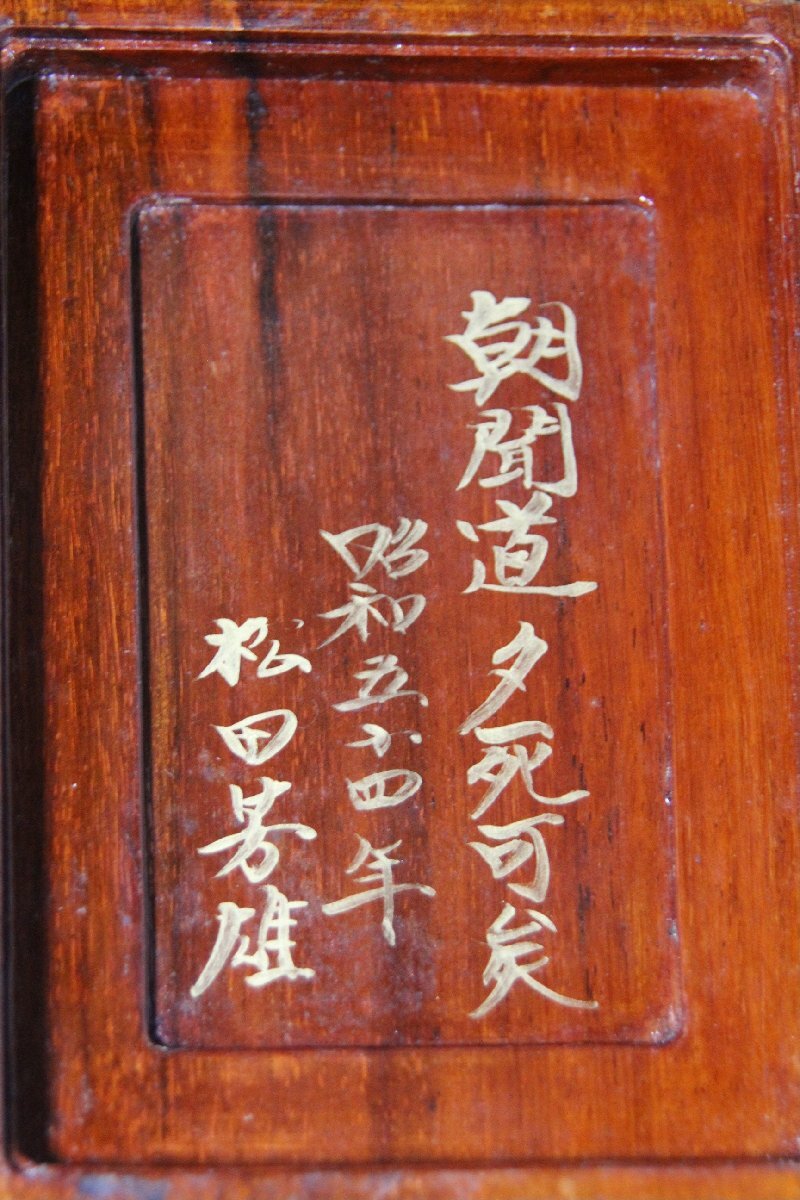 朝聞道夕死可矣
昭和五十四年
松田芳雄